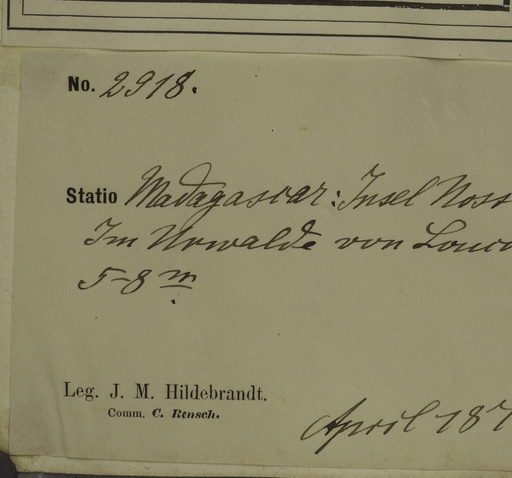 No. 2918.
Statio Madagascar: Insel Noss
Im Urwalde von Louco
5-8 m
Leg. J. M. Hildebrandt.
Comm. C. Rensch.
April 187